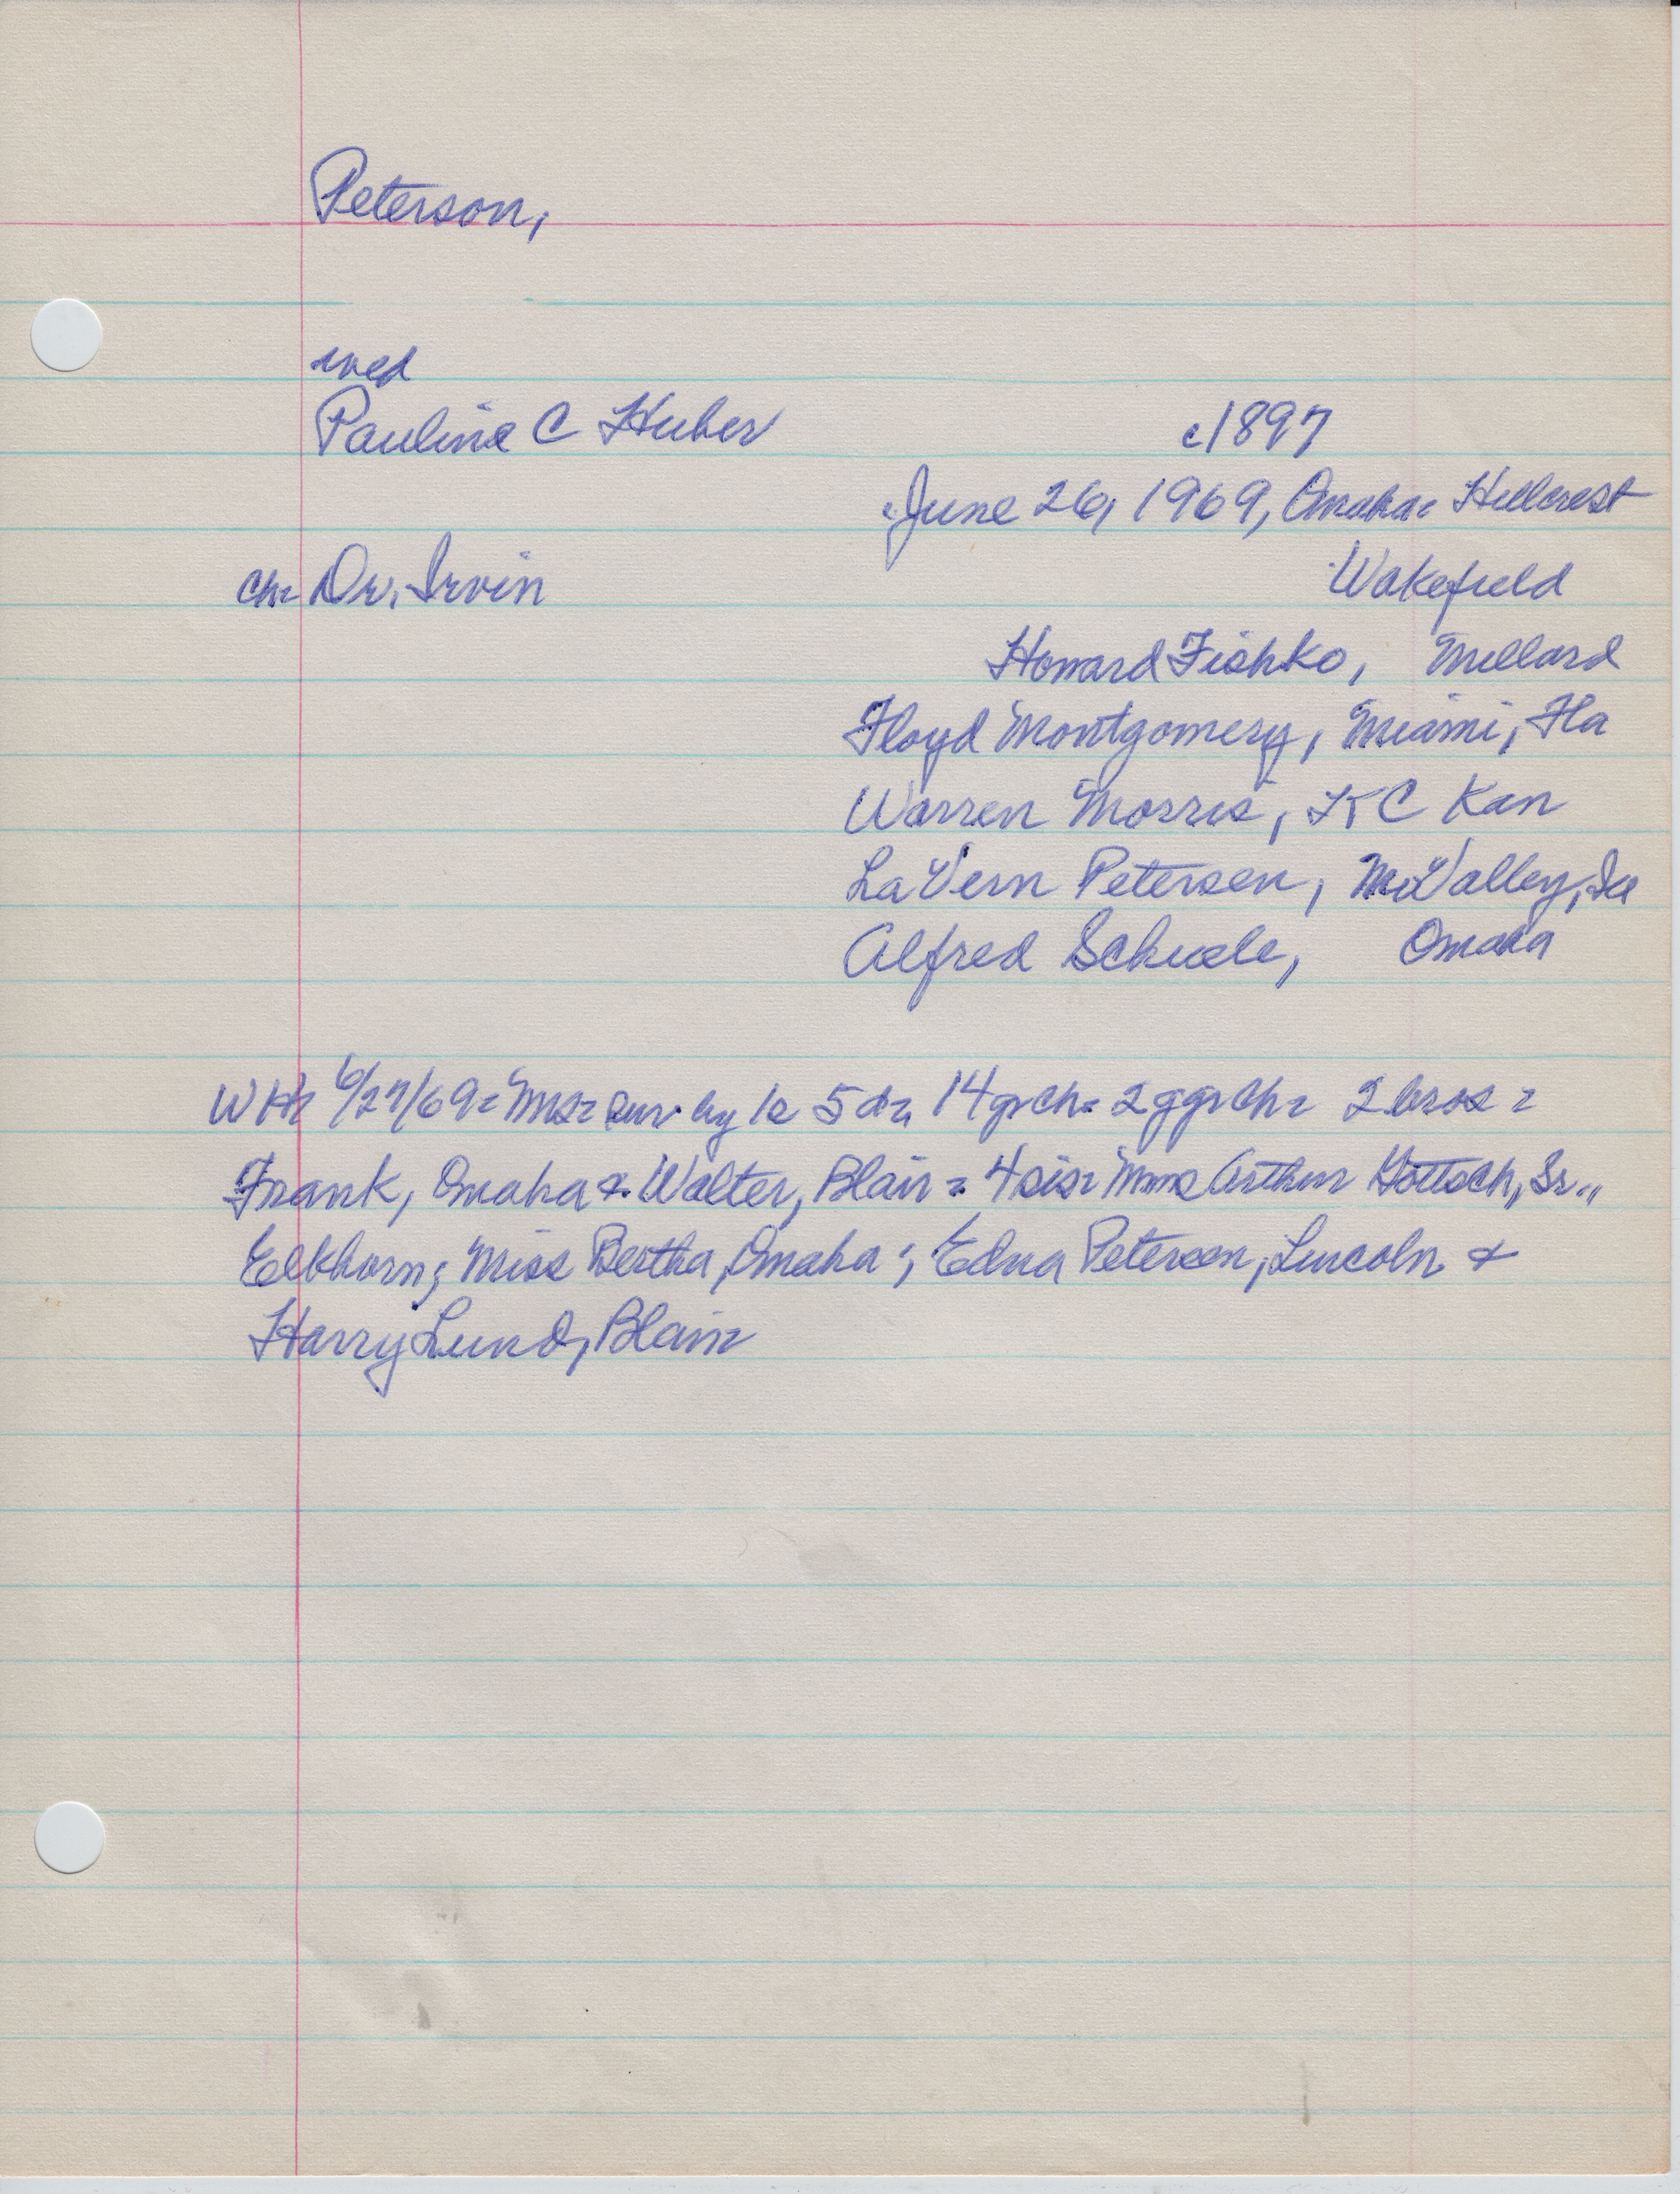 Peterson,
wed
Pauline C Huber c1897
June 26, 1969, Omaha= Hillcrest
Ch= Dr. Irvin Wakefield
Howard Fishko, Millard
Floyd Montgomery, Miami, Fla
Warren Morris, KC Kan
LaVern Petersen, Mo Valley, Ia
Alfred Scheele, Omaha
WH= 6/27/69= Mrs= sur by 1s 5d= 14grch= 2ggrch= 2bros=
Frank, Omaha & Walter, Blair= 4sis= Mmes Arthur Göttsch, Sr.,
Elkhorn; Miss Bertha, Omaha; Edna Petersen, Lincoln &
Harry Lund, Blair=